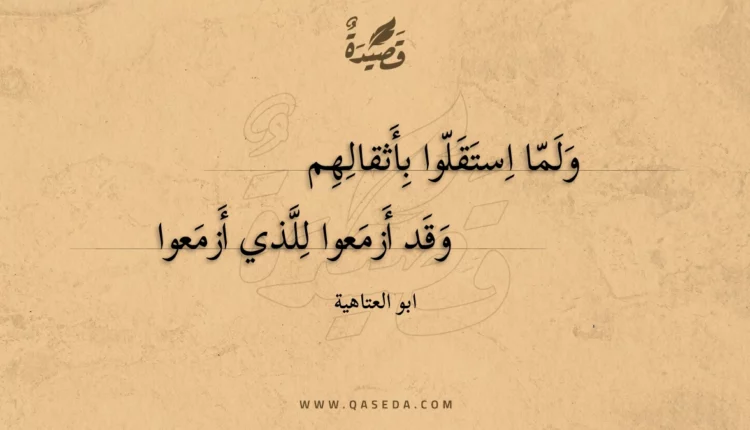 قَصِيدَةٌ
وَلَمّا اِستَقَلّوا بِأَثقالِهِم
وَقَد أَزمَعوا لِلَّذي أَزمَعوا
ابو العتاهية
WWW.QASEDA.COM